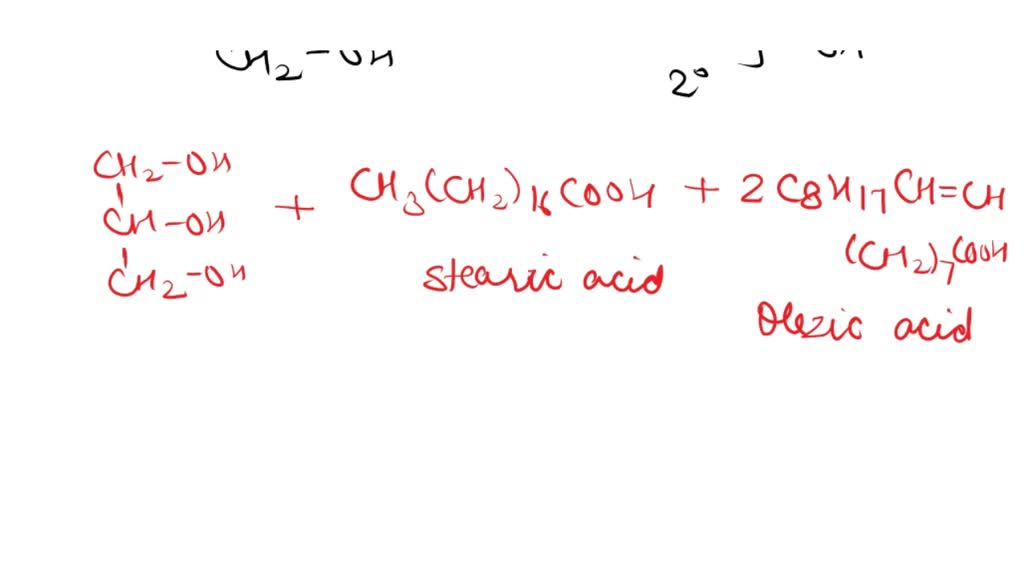 CH2-OH
2°
CH2-OH
CH-OH
CH2-OH
+ CH3(CH2)16COOH + 2 C8H17CH=CH
(CH2)7COOH
Stearic acid
Oleic acid